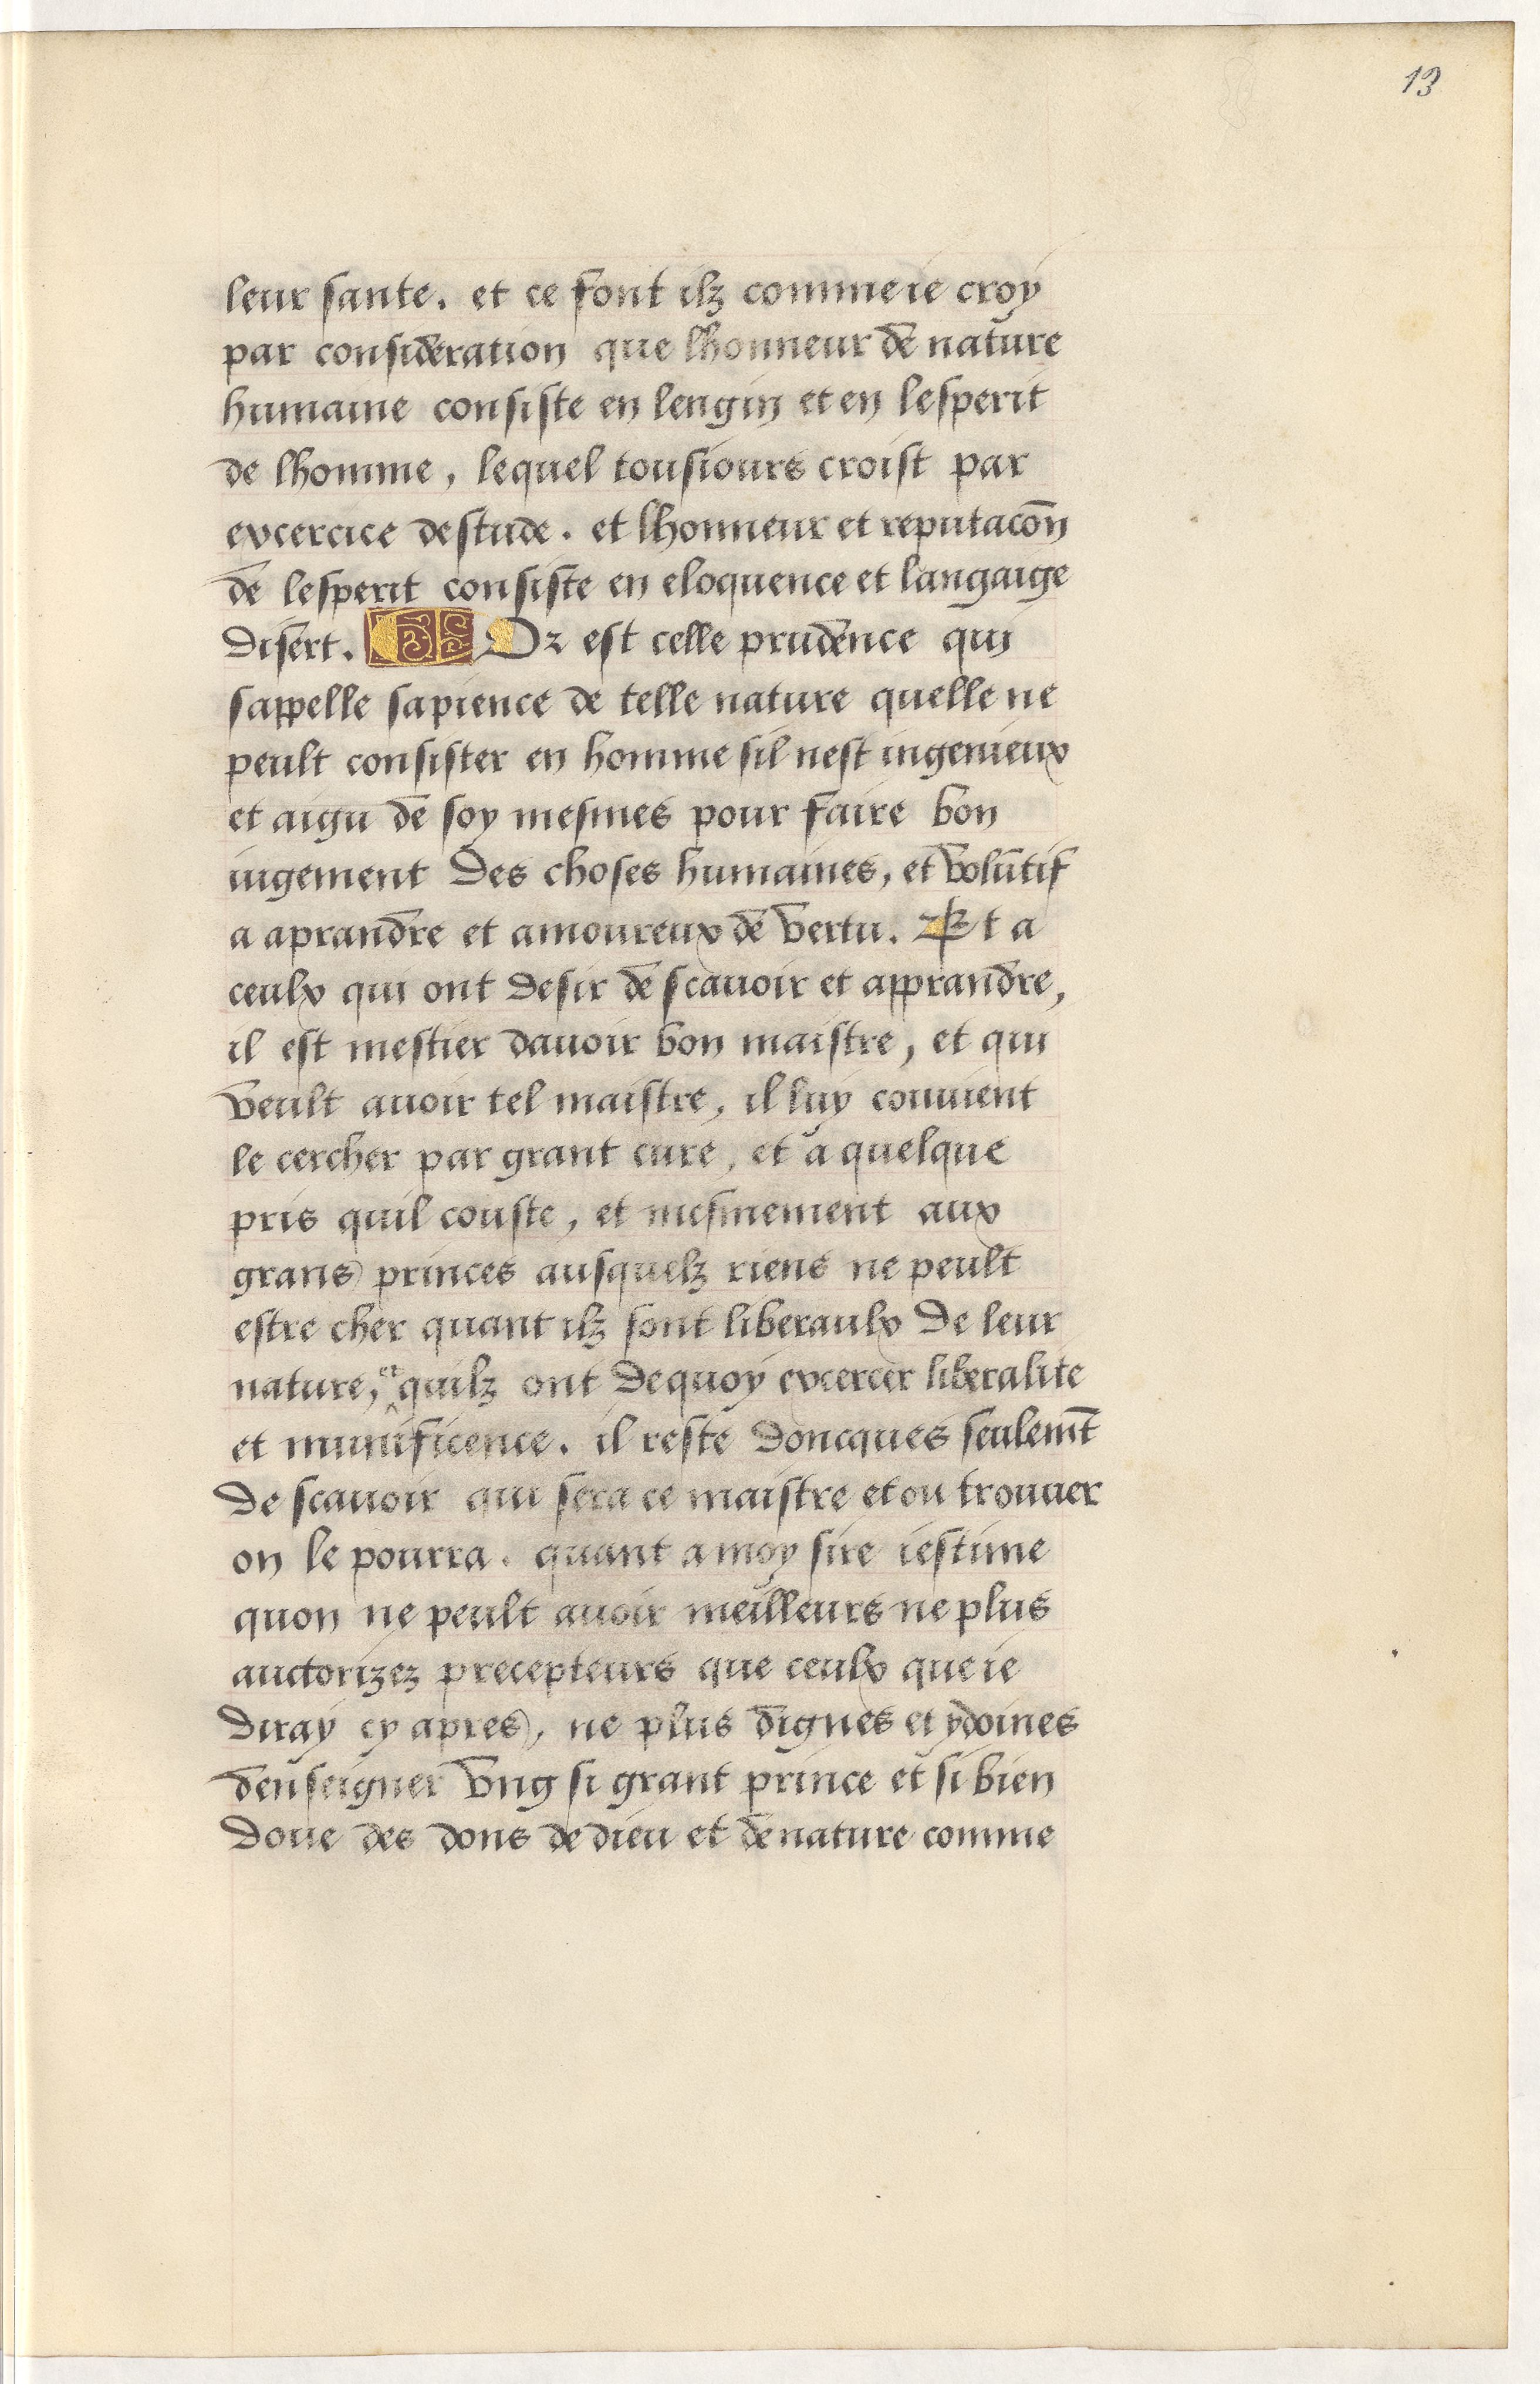 13
leur sante. et ce font ilz comme ie croy
par consideration que lhonneur de nature
humaine consiste en lengin et en lesperit
de lhomme, lequel tousiours croist par
excercice destude. et lhonneur et reputacōn
de lesperit consiste en eloquence et langaige
disert. ¶ Or est celle prudence qui
sappelle sapience de telle nature quelle ne
peult consister en homme sil nest ingenieux
et aigu de soy mesmes pour faire bon
iugement des choses humaines, et volūtif
a aprandre et amoureux de vertu. Et a
ceulx qui ont desir de scauoir et apprandre,
il est mestier dauoir bon maistre, et qui
veult auoir tel maistre, il luy conuient
le cercher par grant cure, et a quelque
pris quil couste, et mesmement aux
grans princes ausquelz riens ne peult
estre cher quant ilz sont liberaulx de leur
nature, et quilz ont dequoy excercer liberalite
et munificence. il reste doncques seulemt̄
de scauoir qui sera ce maistre et ou trouuer
on le pourra. quant a moy sire iestime
quon ne peult auoir meilleurs ne plus
auctorizez precepteurs que ceulx que ie
diray cy apres, ne plus dignes et ydoines
denseigner vng si grant prince et si bien
doue des dons de dieu et de nature comme